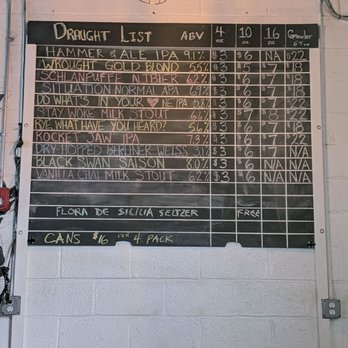 DRAUGHT LIST ABV 4 oz 10 oz 16 oz Growler 64 oz
HAMMER & ALE IPA 9.1% $3 $6 NA $22
WROUGHT GOLD BLOND 5.5% $3 $6 $7 $18
SCHLANPUFFE ALTBIER 6.2% $3 $6 $7 $18
SITUATION NORMAL APA 6.9% $3 $6 $7 $18
DO WHAT'S IN YOUR ♥ NE IPA $3 $6 $7 $22
STAY WOKE MILK STOUT $3 $7 $8 $22
I'VE WHAT HAVE YOU HEARD? 5.6% $3 $6 $7 $18
ROCKET JAVA IPA 7.3% $3 $6 $7 $22
DRY HOPPED BERLINER WEISS $3 $6 $7 N/A
BLACK SWAN SAISON 8.0% $3 $6 N/A N/A
VANILLA CHAI MILK STOUT 6.2% $3 $6 N/A N/A
FLORA DE SICILIA SELTZER FREE
CANS $16 PER 4 PACK